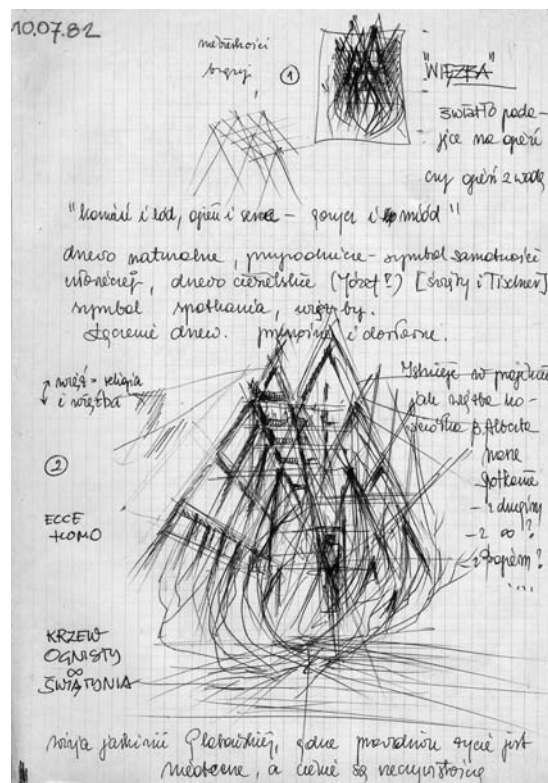 10.07.82
niebieskości
①
"WIĘŹBA"
światło pada-
jące na ogień
czy ogień z wodą
"kamień i lód, ogień i serce – gorycz i miód"
drzewo naturalne, przyrodnicze – symbol samotności
drzewo ciesielskie (Józef?) [święty i Tischner]
symbol spotkania, więźby.
Łączenie drzew. przenośne i dosłowne.
więź = religia
i więźba
Istnieje w projekcie
jak więźba ko-
ściółka B. Alberta
②
ECCE
HOMO
– z drugim
– z ∞ ?
– z Bogiem ?
....
KRZEW
OGNISTY
∞
ŚWIĄTYNIA
wizja jaskini Platońskiej, gdzie prawdziwe życie jest
nieobecne, a cienie są rzeczywistością